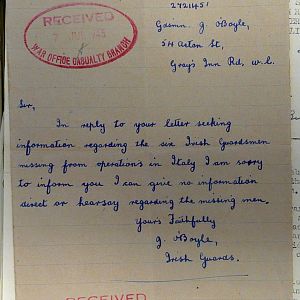 RECEIVED
7 JUL 1945
WAR OFFICE CASUALTY BRANCH
2721451
Gdsmn. J. O'Boyle,
54 Acton St,
Gray's Inn Rd, W.C.
Sir,
In reply to your letter seeking
information regarding the six Irish Guardsmen
missing from operations in Italy I am sorry
to inform you I can give no information
direct or hearsay regarding the missing men.
Yours Faithfully
J. O'Boyle,
Irish Guards.
RECEIVED